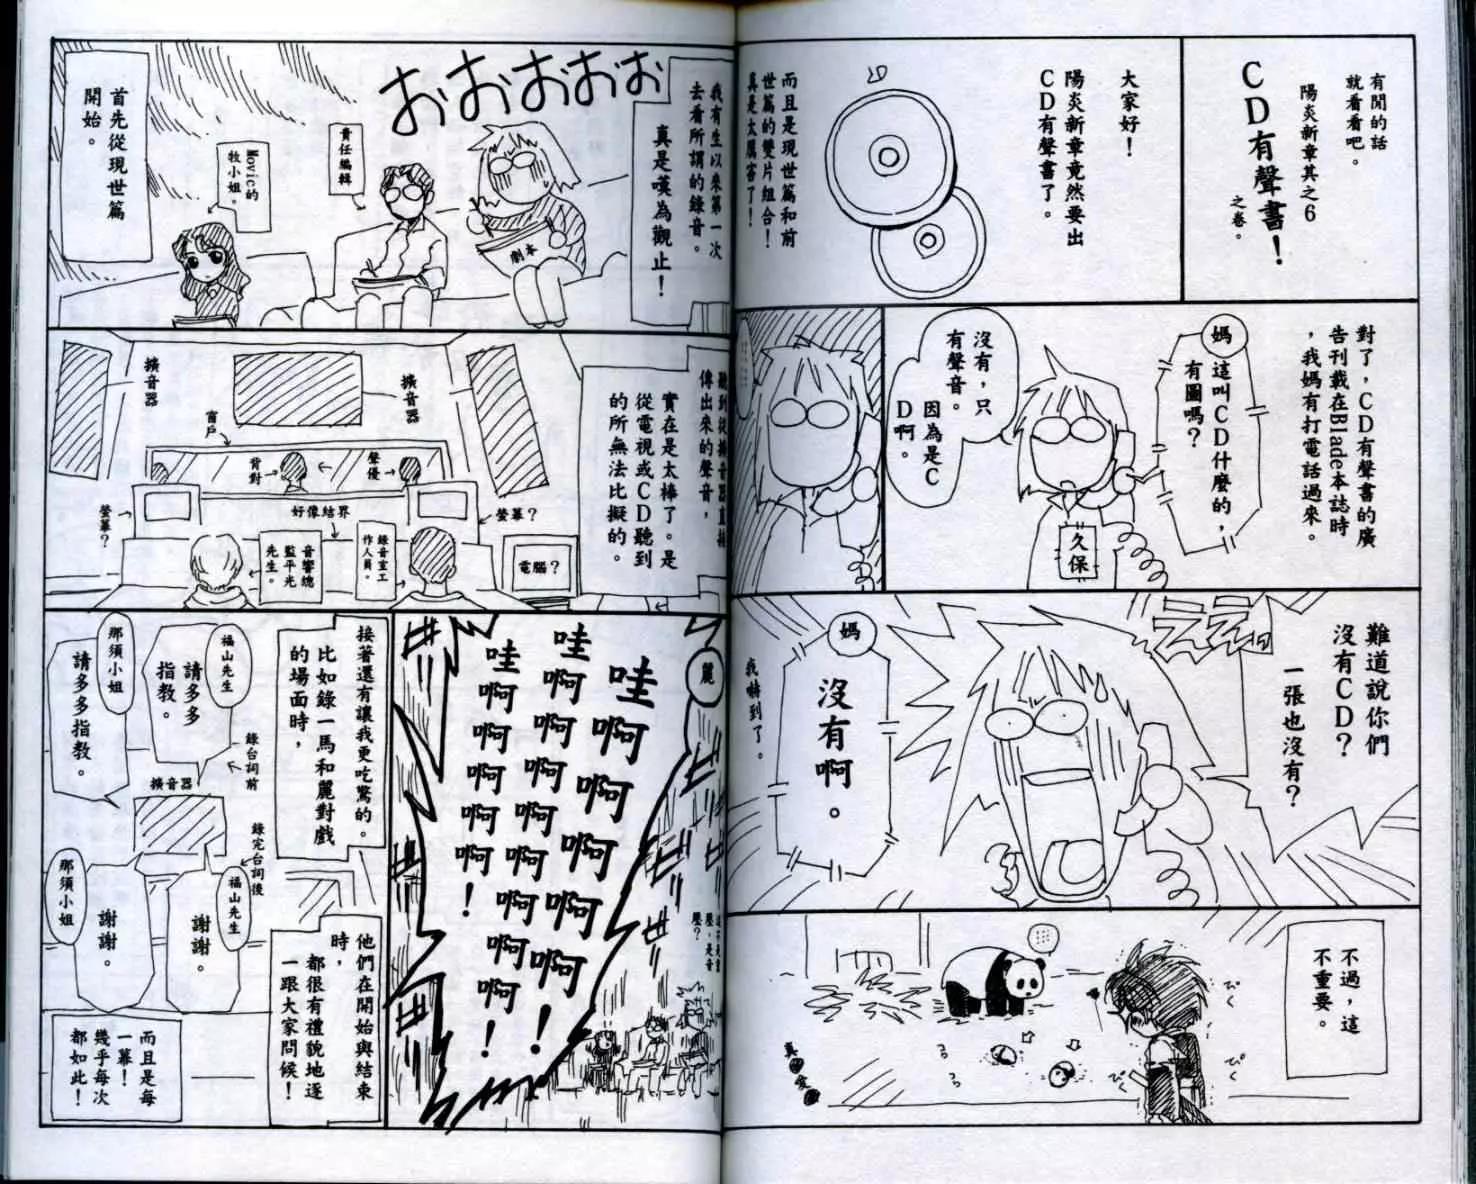 有聞的話
就看看吧。
陽炎新章其之6
CD有聲書！
之卷。
大家好！
陽炎新章竟然要出
CD有聲書了。
而且是現世篇和前
世篇的雙片組合！
真是太厲害了！
對了，CD有聲書的廣
告刊載在Blade本誌時
，我媽有打電話過來。
媽
這叫CD什麼的，
有圖嗎？
久保
沒有，只
有聲音。
因為是C
D啊。
難道說你們
沒有CD？
一張也沒有？
ええっ
媽
沒有啊。
我嚇到了。
不過，這
不重要。
ぴく
ぴく
ぴく
我有生以來第一次
去看所謂的錄音。
真是嘆為觀止！
おおおおお
劇本
責任編輯
Movic的
牧小姐。
首先從現世篇
開始。
聽到從擴音器直接
傳出來的聲音，
實在是太棒了。是
從電視或CD聽到
的所無法比擬的。
擴音器
擴音器
窗戶
聲優
背對
螢幕？
好像結界
螢幕？
電腦？
錄音室工
作人員。
音響總
監平光
先生。
麗
哇啊啊啊啊啊啊！
哇啊啊啊啊啊啊！
哇啊啊啊啊！
接著還有讓我更吃驚的。
比如錄一馬和麗對戲
的場面時，
福山先生
請多多
指教。
那須小姐
請多多指教。
錄台詞前
擴音器
錄完台詞後
福山先生
謝謝。
那須小姐
謝謝。
他們在開始與結束
時，
都很有禮貌地逐
一跟大家問候！
而且是每
一幕！
幾乎每次
都如此！